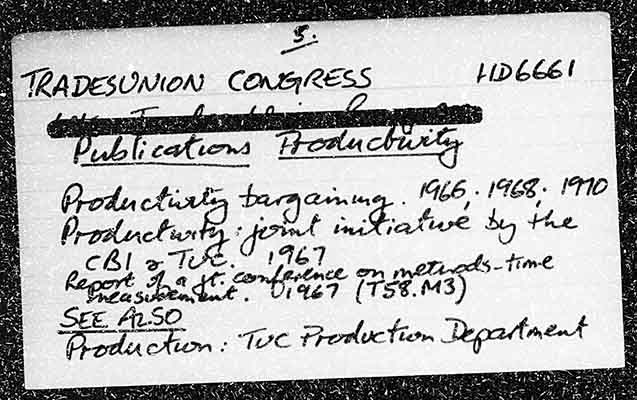 5.
TRADES UNION CONGRESS HD6661
Publications Productivity
Productivity bargaining. 1966; 1968; 1970
Productivity: joint initiative by the
CBI & TUC. 1967
Report of a jt. conference on methods-time
measurement. 1967 (T58.M3)
SEE ALSO
Production: TUC Production Department